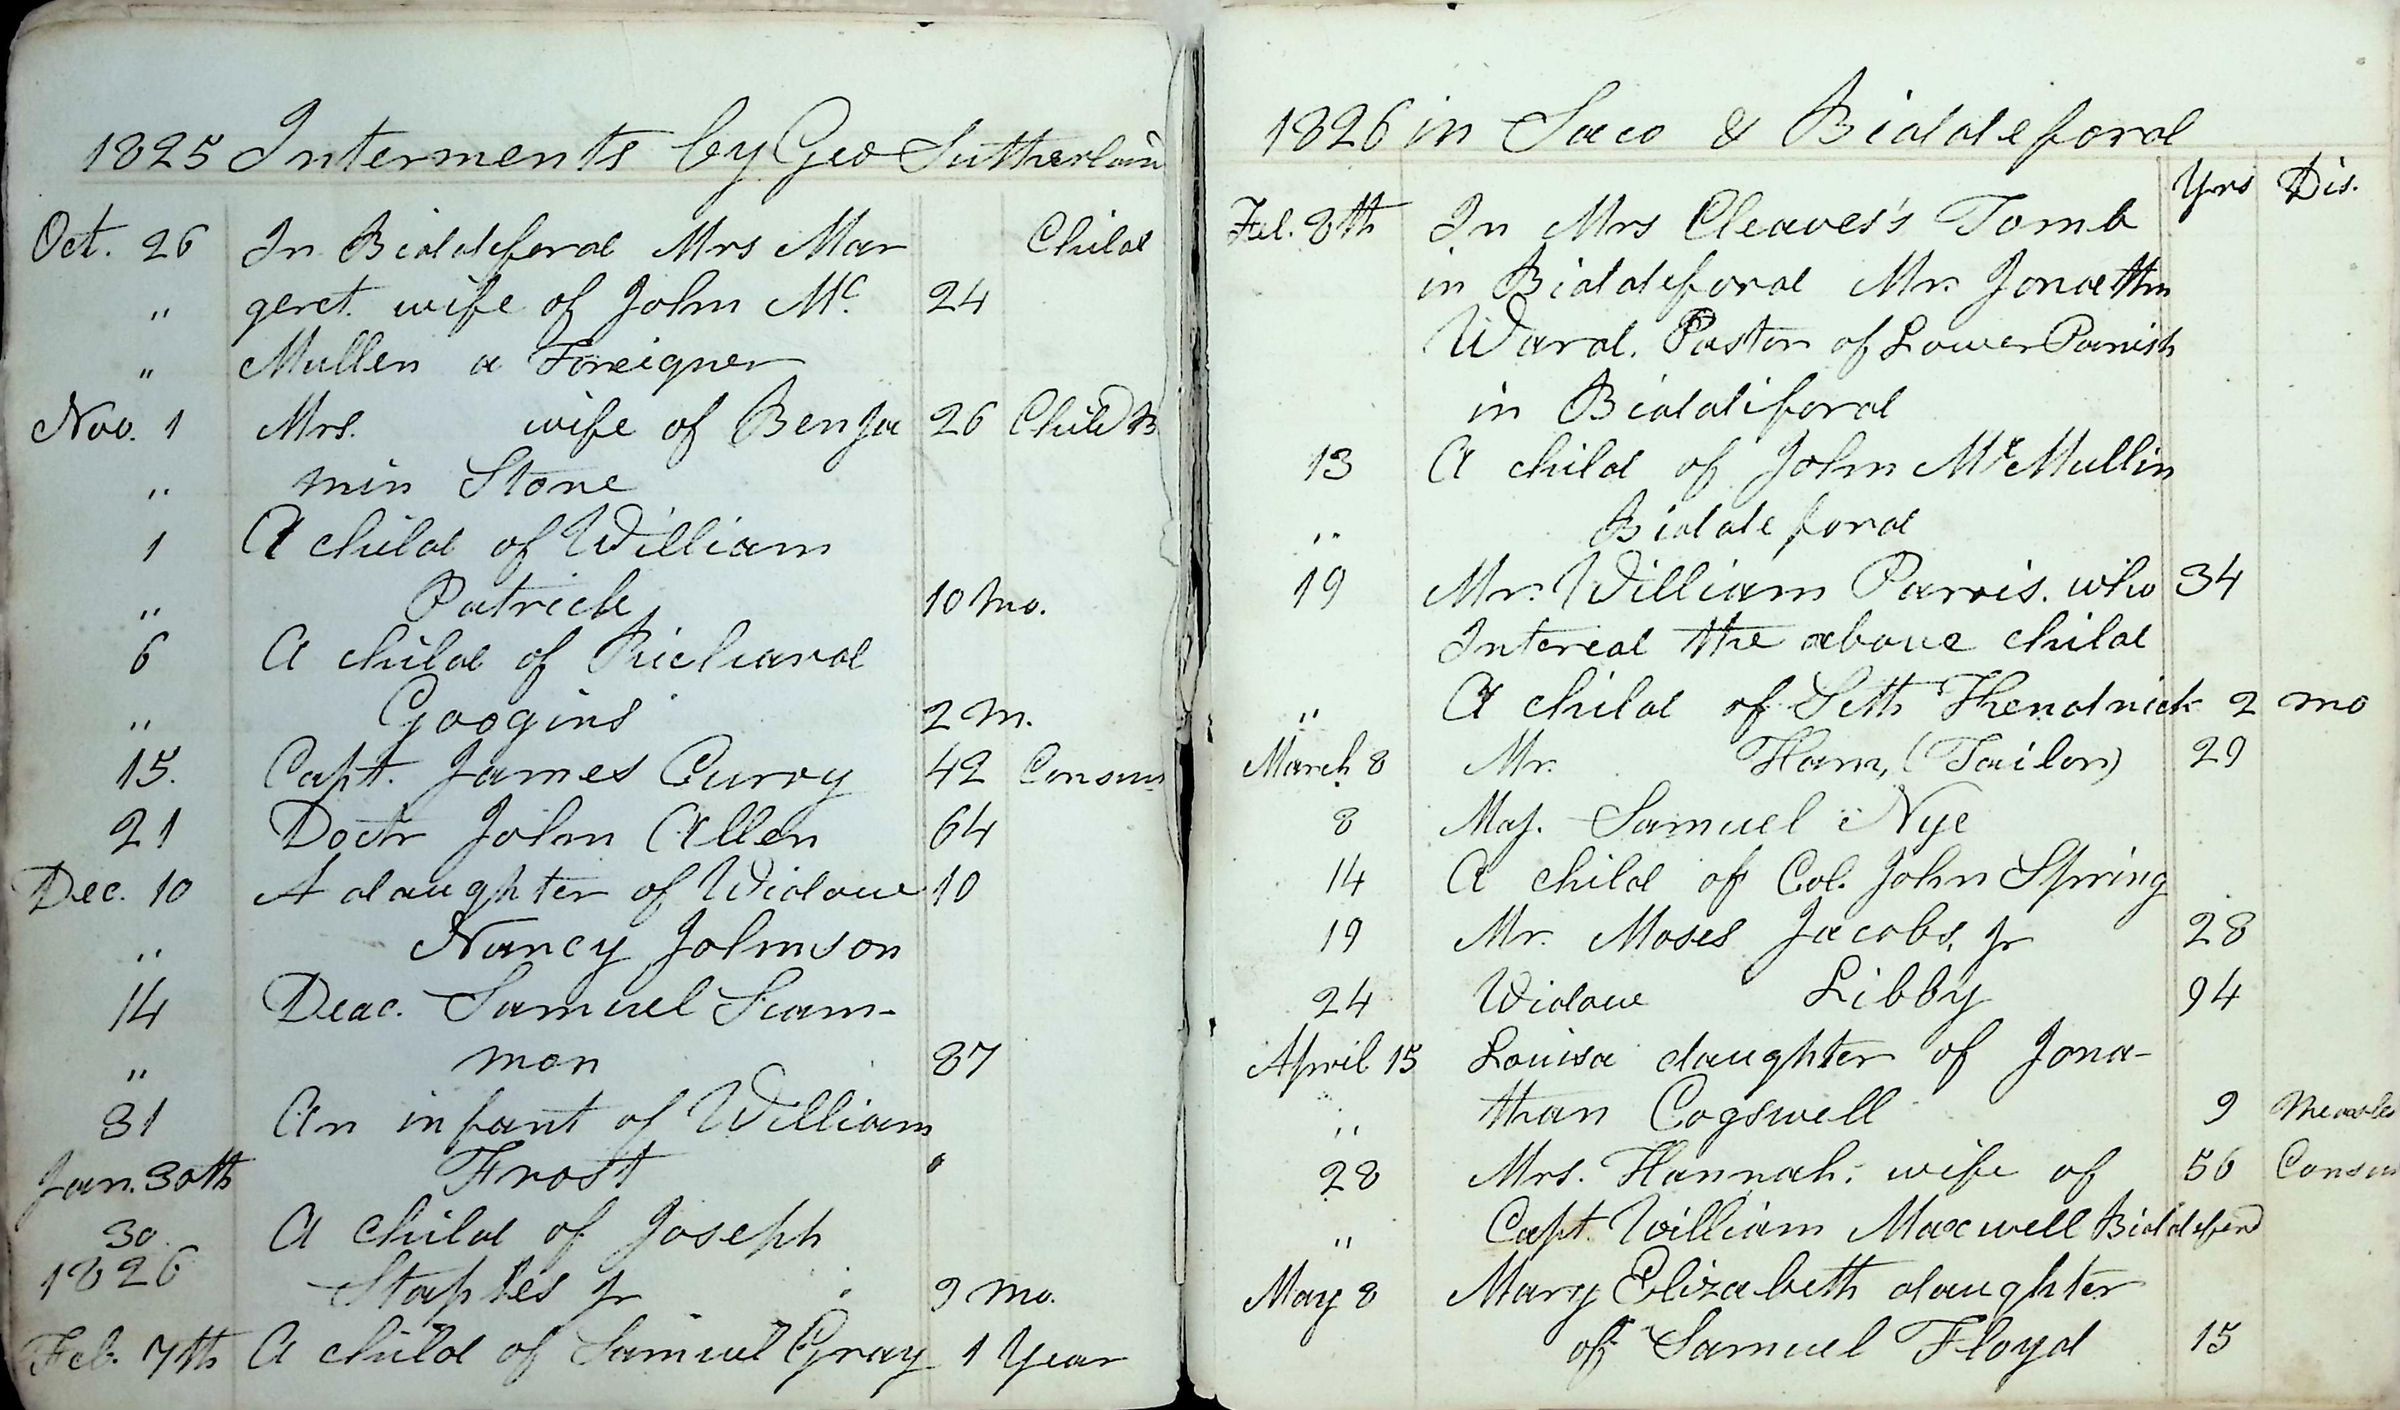 1825 Interments by Geo Sutherland
Oct. 26 In Biddeford Mrs Mar Child
" geret. wife of John Mc. 24
" Mullen a Foreigner
Nov. 1 Mrs. wife of Benja 26 Child B
" min Stone
1 A child of William
" Patrick 10 mo.
6 A child of Richard
" Googins 2 m.
15. Capt. James Curry 42 Consum
21 Doctr John Allen 64
Dec. 10 A daughter of Widow 10
" Nancy Johnson
14 Deac. Samuel Scam-
" mon 87
31 An infant of William
Jan. 30th Frost
30 A child of Joseph
1826 Staples Jr 9 mo.
Feb. 7th A child of Samuel Gray 1 Year
1826 in Saco & Biddeford
Yrs Dis.
Feb. 8th In Mrs Cleaves's Tomb
in Biddeford Mr. Jonathn
Ward. Pastor of Lower Parish
in Biddiford
13 A child of John McMullin
" Biddeford
19 Mr. William Parris. who 34
Intered the above child
" A child of Seth Hendrick 2 mo
March 8 Mr. Ham, (Tailor) 29
8 Maj. Samuel Nye
14 A child of Col. John Spring
19 Mr. Moses Jacobs, Jr 28
24 Widow Libby 94
April 15 Louisa daughter of Jona-
" than Cogswell 9 Measles
28 Mrs. Hannah. wife of 56 Consum
" Capt. William Maxwell Biddeford
May 8 Mary Elizabeth daughter
of Samuel Floyd 15